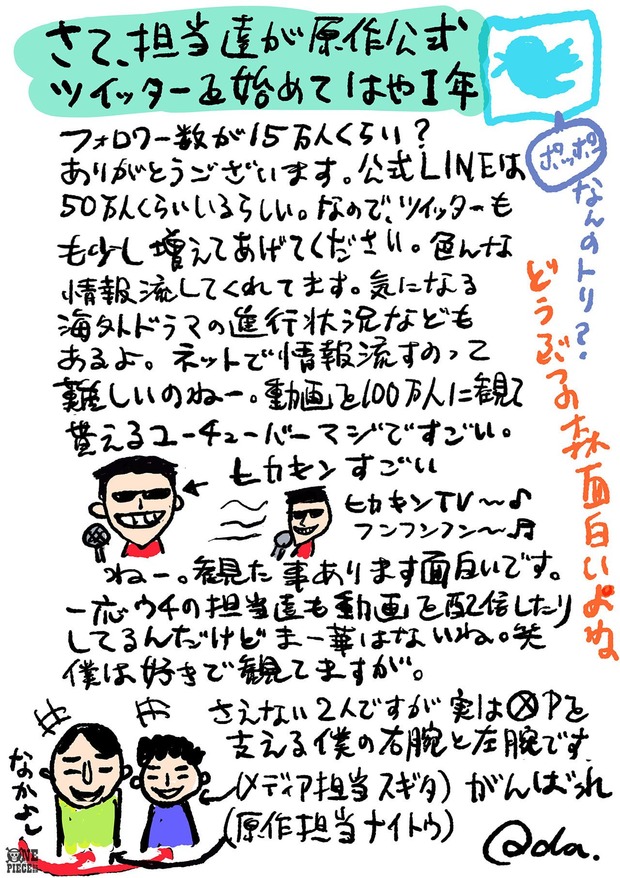 さて、担当達が原作公式
ツイッターを始めてはや1年
ポッポ
なんのトリ?
どうぶつの森面白いよね
フォロワー数が15万人くらい?
ありがとうございます。公式LINEは
50万人くらいいるらしい。なので、ツイッターも
も少し増えてあげてください。色んな
情報流してくれてます。気になる
海外ドラマの進行状況なども
あるよ。ネットで情報流すのって
難しいのねー。動画を100万人に観て
貰えるユーチューバーマジですごい。
←ヒカキンすごい
ヒカキンTV〜♪
フンフンフン〜♬
ねー。観た事あります面白いです。
一応ウチの担当達も動画を配信したり
してるんだけどまー華はないね。笑
僕は好きで観てますが。
さえない2人ですが実はⓍPを
支える僕の右腕と左腕です
(メディア担当スギタ)がんばれ
(原作担当ナイトウ)
なかよし
@da.
ONE PIECE